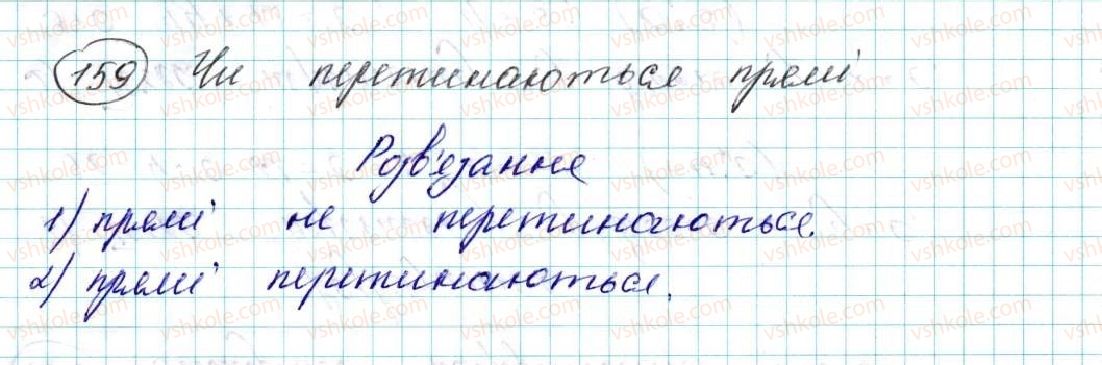 159 Чи перетинаються прямі
Розв'язання
1) прямі не перетинаються.
2) прямі перетинаються.